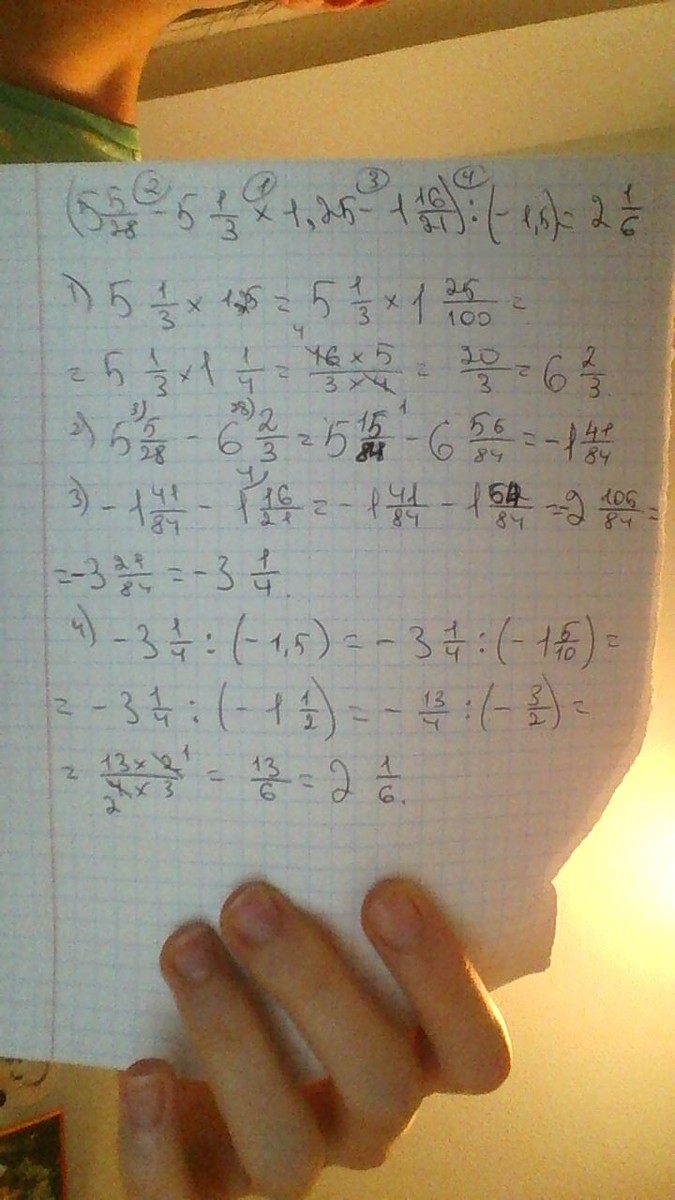 ② ① ③ ④
(5 5/28 - 5 1/3 × 1,25 - 1 16/21) : (-1,5) = 2 1/6
1) 5 1/3 × 1,25 = 5 1/3 × 1 25/100 =
= 5 1/3 × 1 1/4 = 16 × 5 / 3 × 4 = 20/3 = 6 2/3.
2) 5 5/28 - 6 2/3 = 5 15/84 - 6 56/84 = -1 41/84
3) -1 41/84 - 1 16/21 = -1 41/84 - 1 64/84 = -2 105/84 =
= -3 21/84 = -3 1/4.
4) -3 1/4 : (-1,5) = -3 1/4 : (-1 5/10) =
= -3 1/4 : (-1 1/2) = -13/4 : (-3/2) =
= 13 × 2 / 4 × 3 = 13/6 = 2 1/6.